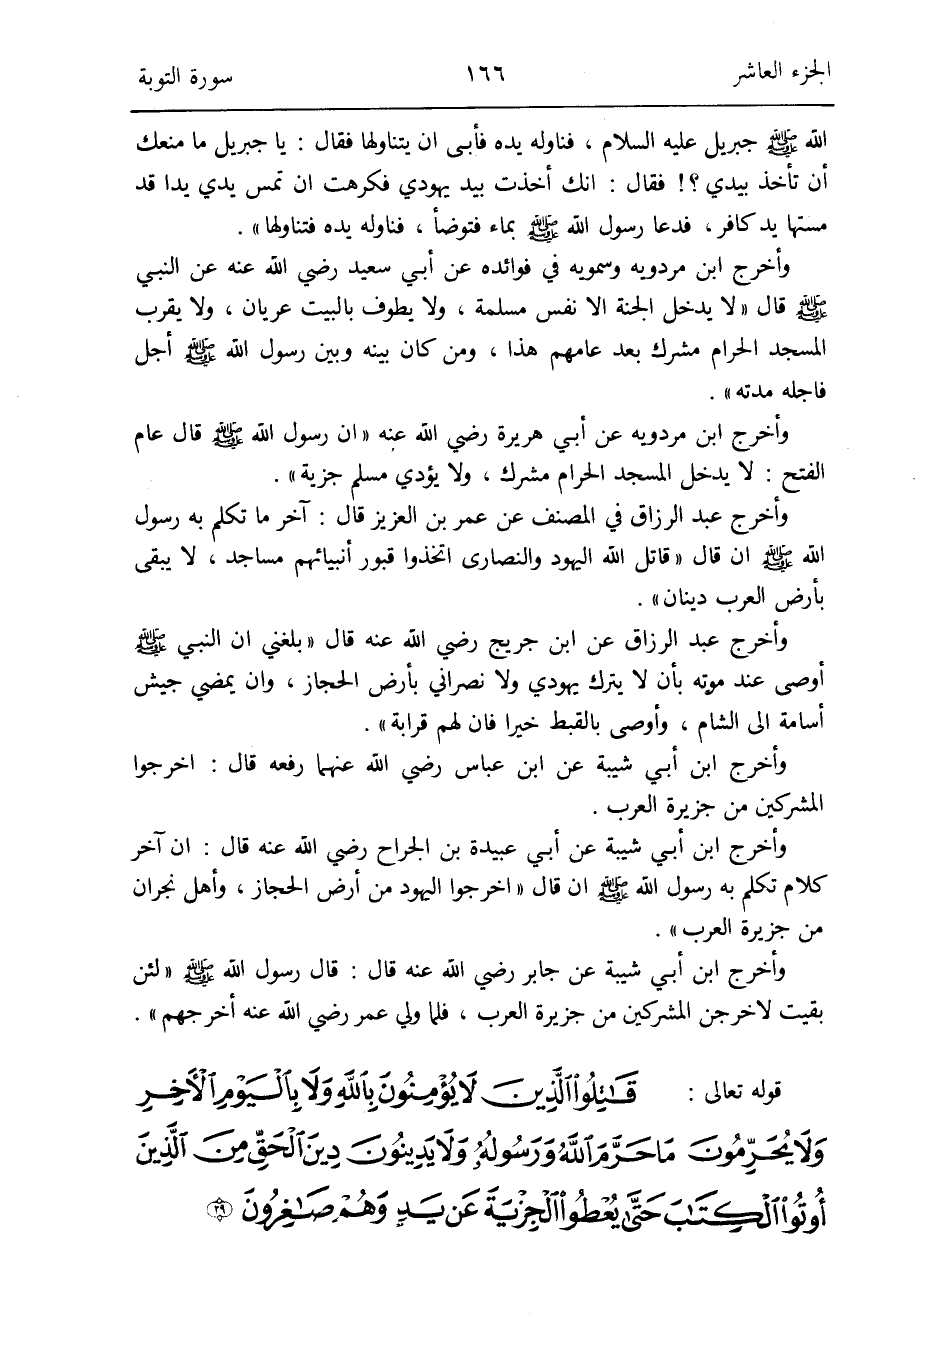 الجزء العاشر ١٦٦ سورة التوبة
الله ﷺ جبريل عليه السلام ، فناوله يده فأبى ان يتناولها فقال : يا جبريل ما منعك
أن تأخذ بيدي ؟! فقال : انك أخذت بيد يهودي فكرهت ان تمس يدي يدا قد
مستها يد كافر ، فدعا رسول الله ﷺ بماء فتوضأ ، فناوله يده فتناولها» .
وأخرج ابن مردويه وسمويه في فوائده عن أبي سعيد رضي الله عنه عن النبي
ﷺ قال «لا يدخل الجنة الا نفس مسلمة ، ولا يطوف بالبيت عريان ، ولا يقرب
المسجد الحرام مشرك بعد عامهم هذا ، ومن كان بينه وبين رسول الله ﷺ أجل
فاجله مدته» .
وأخرج ابن مردويه عن أبي هريرة رضي الله عنه «ان رسول الله ﷺ قال عام
الفتح : لا يدخل المسجد الحرام مشرك ، ولا يؤدي مسلم جزية» .
وأخرج عبد الرزاق في المصنف عن عمر بن العزيز قال : آخر ما تكلم به رسول
الله ﷺ ان قال «قاتل الله اليهود والنصارى اتخذوا قبور أنبيائهم مساجد ، لا يبقى
بأرض العرب دينان» .
وأخرج عبد الرزاق عن ابن جريج رضي الله عنه قال «بلغني ان النبي ﷺ
أوصى عند موته بأن لا يترك يهودي ولا نصراني بأرض الحجاز ، وان يمضي جيش
أسامة الى الشام ، وأوصى بالقبط خيرا فان لهم قرابة» .
وأخرج ابن أبي شيبة عن ابن عباس رضي الله عنهما رفعه قال : اخرجوا
المشركين من جزيرة العرب .
وأخرج ابن أبي شيبة عن أبي عبيدة بن الجراح رضي الله عنه قال : ان آخر
كلام تكلم به رسول الله ﷺ ان قال «اخرجوا اليهود من أرض الحجاز ، وأهل نجران
من جزيرة العرب» .
وأخرج ابن أبي شيبة عن جابر رضي الله عنه قال : قال رسول الله ﷺ «لئن
بقيت لاخرجن المشركين من جزيرة العرب ، فلما ولي عمر رضي الله عنه أخرجهم» .
قوله تعالى : قَٰتِلُوا۟ ٱلَّذِينَ لَا يُؤْمِنُونَ بِٱللَّهِ وَلَا بِٱلْيَوْمِ ٱلْأَخِرِ
وَلَا يُحَرِّمُونَ مَا حَرَّمَ ٱللَّهُ وَرَسُولُهُۥ وَلَا يَدِينُونَ دِينَ ٱلْحَقِّ مِنَ ٱلَّذِينَ
أُوتُوا۟ ٱلْكِتَٰبَ حَتَّىٰ يُعْطُوا۟ ٱلْجِزْيَةَ عَن يَدٍ وَهُمْ صَٰغِرُونَ ٢٩